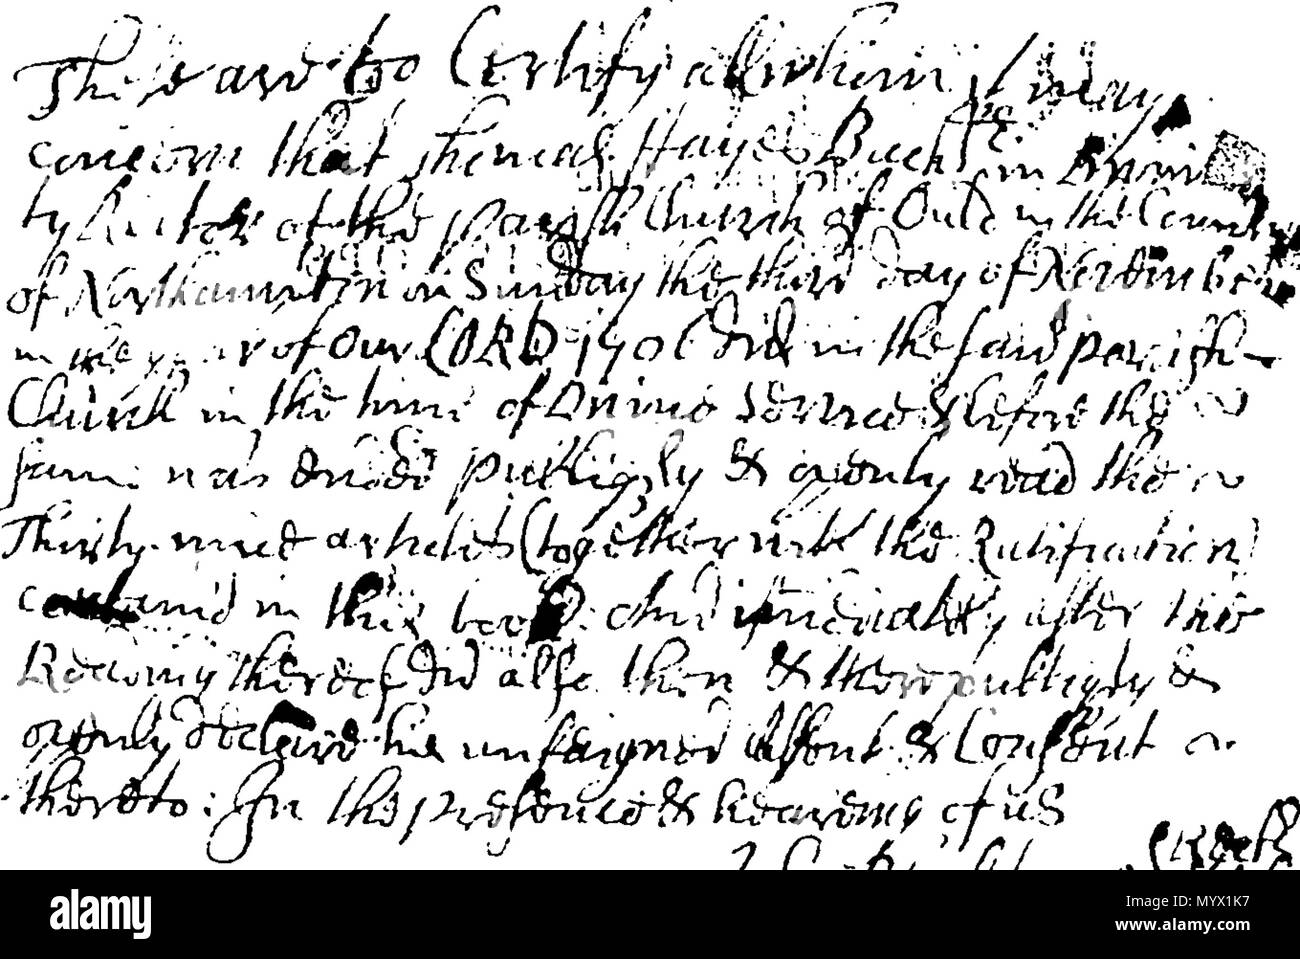 These are to Certify all whom it may
concern that Thomas Hayes Bach.re in Divini
ty Rector of the parish Church of Ould in the County
of Northamton on Sunday the third day of November
in the year of our LORD 170 did in the said parish
Church in the time of Divine Service & before the ~
same was ended publiqly & openly read the ~
Thirty-nine articles (together with the Ratification)
contain'd in this book. And imediatly after the
Reading thereof did also then & there publiqly &
openly declare his unfeigned Assent & Consent ~
thereto: In the presence & hearing of us
alamy
Image ID: MYX1K7
www.alamy.com